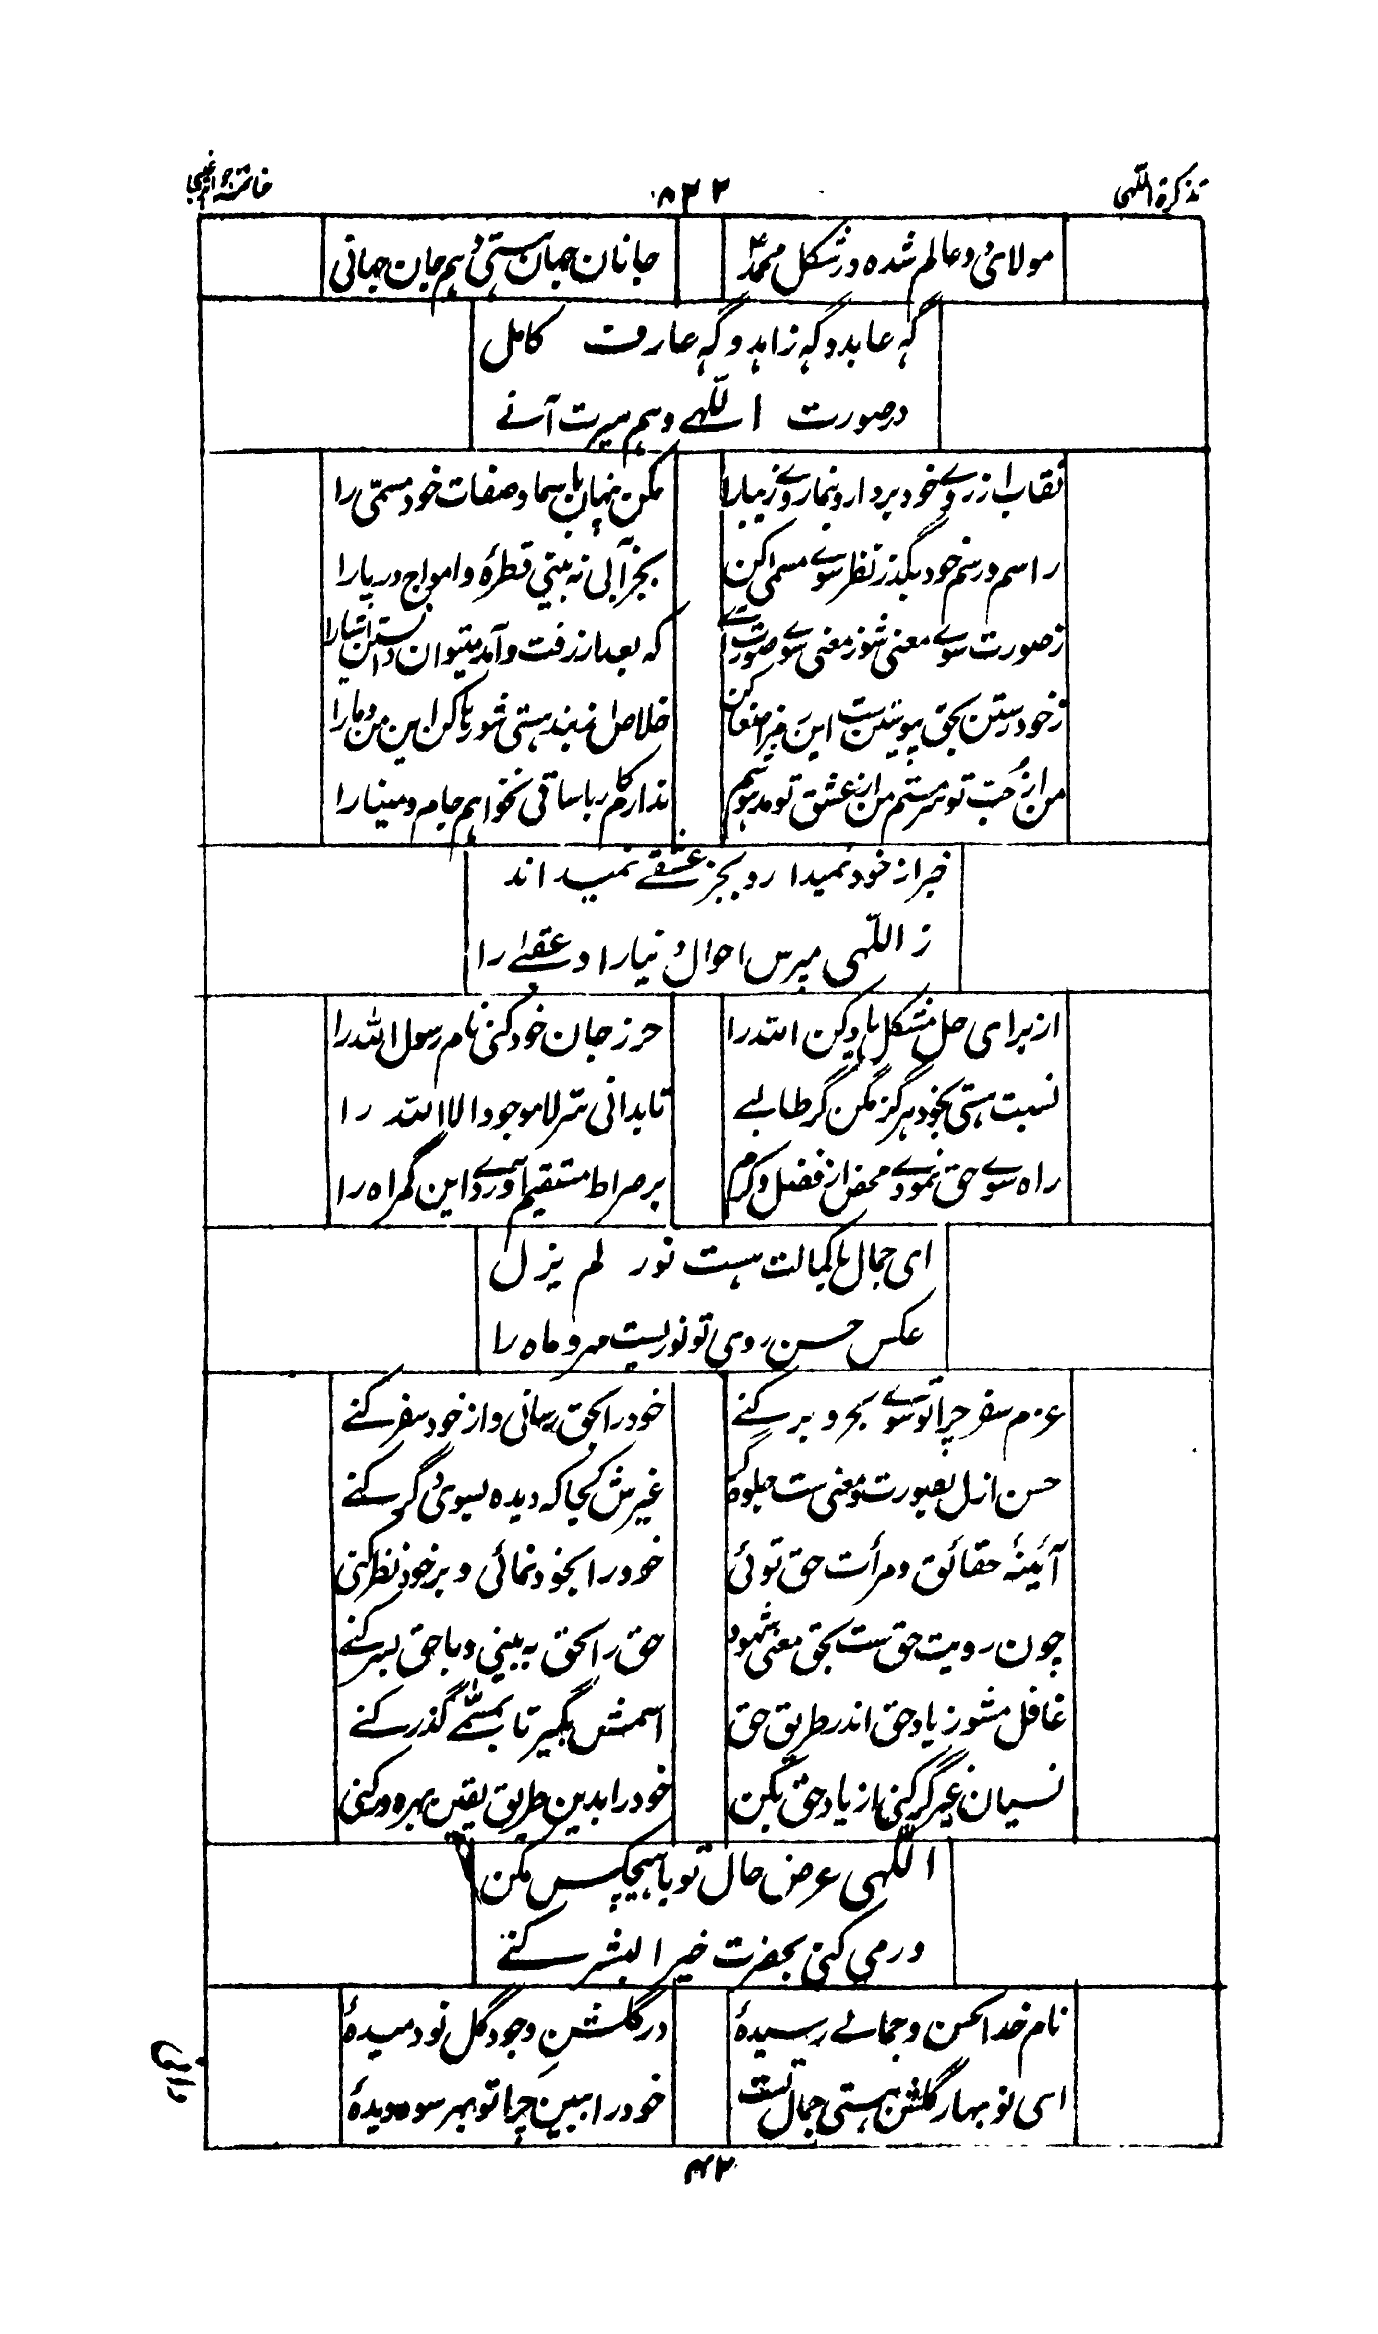 تذکرة اللّٰہی ۸۲۲ خاتمۂ جواہر غیبی
مولائ دو عالم شده در شکل محمدؐ جانان جہان ہستی و ہم جان جہانی
گہ عابد و گہ زاہد و گہ عارف کامل
در صورت اللّٰہے و ہم سیرت آنے
نقاب از روے خود بردار و بنما روے زیبا را مکن پنہان باسما و صفات خود مسمّی را
ز اسم و رسم خود بگذر نظر سوے مسمی کن بجز آبی نہ بینی قطرۂ و امواج دریا را
ز صورت سوے معنی شو ز معنی سوے صورت آ کہ بعد از رفت و آمد میتوان دانستن اشیا را
ز خود رستن بحق پیوستن ست این خلاص از بند ہستی شو رہا کن این من و ما را
من از حُبّ تو سرمستم من از عشق تو مدہوشم ندارم کام با ساقی نخواہم جام و مینا را
خبر از خود نمیدارد بجز عشقے نمیداند
ز اللّٰہی مپرس احوال دنیا را و عقبےٰ را
از برای حل مشکل یاد کن اللّٰہ را حرز جان خود کنی نام رسول اللّٰہ را
نسبت ہستی بخود ہرگز مکن گر طالبے تا بدانی سّر لا موجود الا اللّٰہ را
راہ سوے حق نمودی محض از فضل و کرم بر صراط مستقیم آوردی این گمراہ را
ای جمال با کمالت ہست نور لم یزل
عکس حسن روی تو نوریست مہر و ماہ را
عزم سفر چرا تو سوے بحر و بر کنے خود را بحق رسانی و از خود سفر کنے
حسن ازل بصورت و معنی ست جلوہ گر غیرش کجا کہ دیدہ بسوی دگر کنے
آئینۂ حقائق و مرأت حق توئی خود را بخود نمائی و بر خود نظر کنی
چون رویت حق ست بحق معنی شہود حق را بحق بہ بینی و با حق بسر کنے
غافل مشو ز یاد حق اندر طریق حق اسمش بگیر تا بمسمّٰے گذر کنے
نسیان غیر گر کنی از یاد حق بکن خود را بدین طریق یقین بہرہ ور کنی
اللّٰہی عرض حال تو با ہیچکس مکن
ور می کنی بحضرت خیر البشر کنے
نام خدا بحسن و جمالے رسیدۂ در گلشنِ وجود گل نو دمیدۂ
ای نو بہار گلشن ہستی جمال تست خود را ببین چرا تو بہر سو دویدۂ
دانی
۴۲